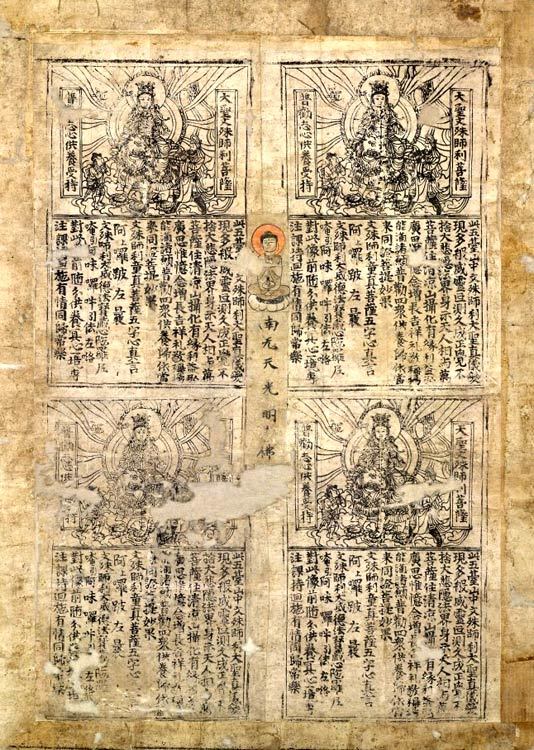 大聖文殊師利菩薩
普勸志心供養受持
此五臺山中文殊師利大聖真儀變
現多般威靈叵測久成正覺不
捨大悲隱法界身示天人相與萬
菩薩住清涼山攝化有緣利益弘
廣思惟憶念增長吉祥禮敬稱揚
能滿諸願普勸四眾供養歸依當
來同證菩提妙果
文殊師利童真菩薩五字心真言
阿上囉跛左曩
文殊師利大威德法寶藏心陁羅尼
唵引阿味囉吽引佉左
對此像前隨分供養心專
注課持迴施有情同歸常樂
大聖文殊師利菩薩
普 志心供養受持
此五臺山中文殊師利大聖真儀變
現多般威靈叵測久成正覺不
捨大悲隱法界身示天人相與萬
菩薩住清涼山攝化有緣利益弘
廣思惟憶念增長吉祥禮敬稱揚
能滿諸願普勸四眾供養歸依當
來同證菩提妙果
文殊師利童真菩薩五字心真言
阿上囉跛左曩
文殊師利大威德法寶藏心陁羅尼
唵引阿味囉吽引佉左
對此 前隨分供養心專
注課持迴施有情同歸常樂
南无天光明佛
大聖文殊師利菩
普勸志心供 受持
此五臺山中文殊師利大聖真儀變
現多般威靈叵測久成正覺不
捨大悲隱法界身示天人相與萬
菩薩住清涼山攝化有緣利益弘
廣思惟憶念增長吉祥禮敬稱揚
能滿諸願普勸四眾供養歸依當
來同證菩提妙果
文殊師利童真菩薩五字心真言
阿上囉跛左曩
文殊師利大威德法寶藏心陁羅尼
唵引阿味囉吽引佉左
對此像前隨分供養心專
注課持迴施有情同歸常樂
普勸志心 受持
此五臺山中文殊師利大聖真儀變
現多般威靈叵測久成正覺不
捨大悲隱法界身示天人相與萬
菩薩住清涼山攝化有緣利
思惟憶念增長吉祥禮敬稱揚
能滿諸願普勸四眾供養歸依當
來同證菩提妙果
文殊師利童真菩薩五字心真言
阿上囉跛左曩
文殊師利大威德法寶藏心陁羅尼
唵引阿味囉吽引佉左
對此像前隨分供養心專
注課持迴施有情同歸常樂